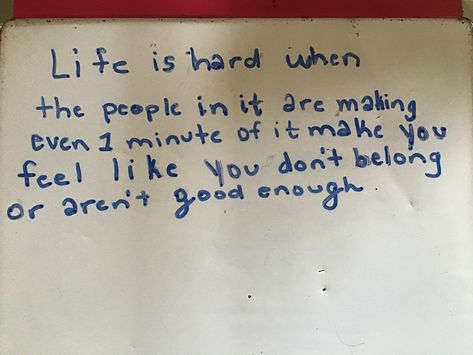 Life is hard when
the people in it are making
even 1 minute of it make you
feel like you don't belong
or aren't good enough.